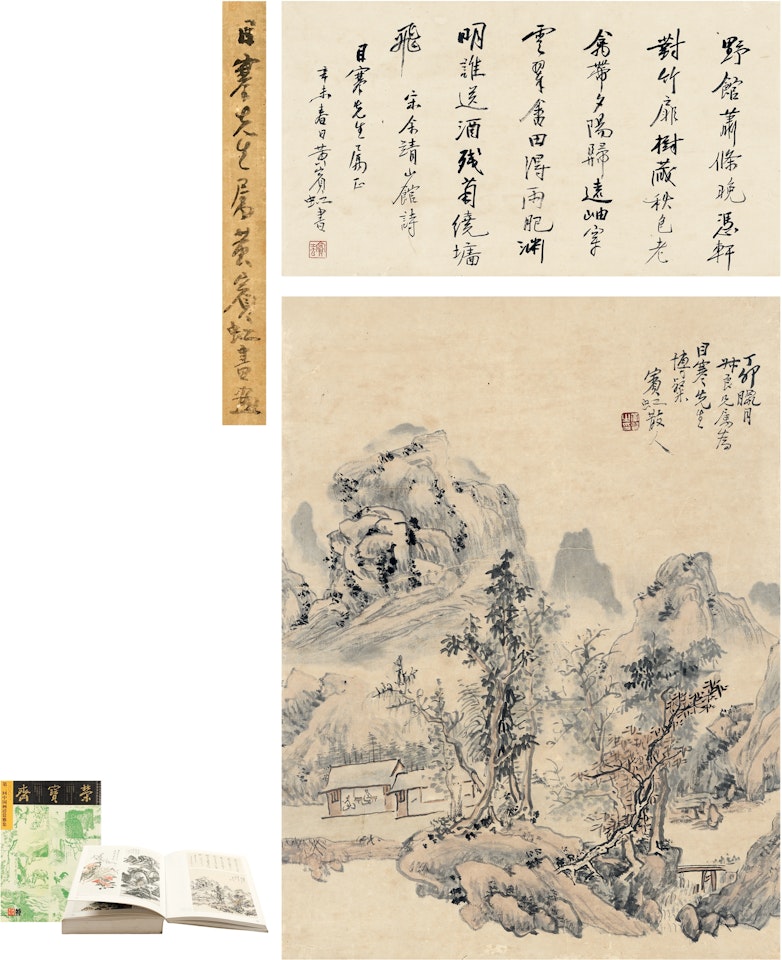 目寒先生屬黃賓虹書畫
野館蕭條晚憑軒
對竹扉樹藏秋色老
禽帶夕陽歸遠岫穿
雲翠畬田得雨肥淵
明誰送酒殘菊繞墻
飛 宋余靖山館詩
目寒先生屬正
辛未春日黃賓虹書
丁卯臘月
叔良兄屬為
目寒先生
博粲
賓虹散人
榮寶齋